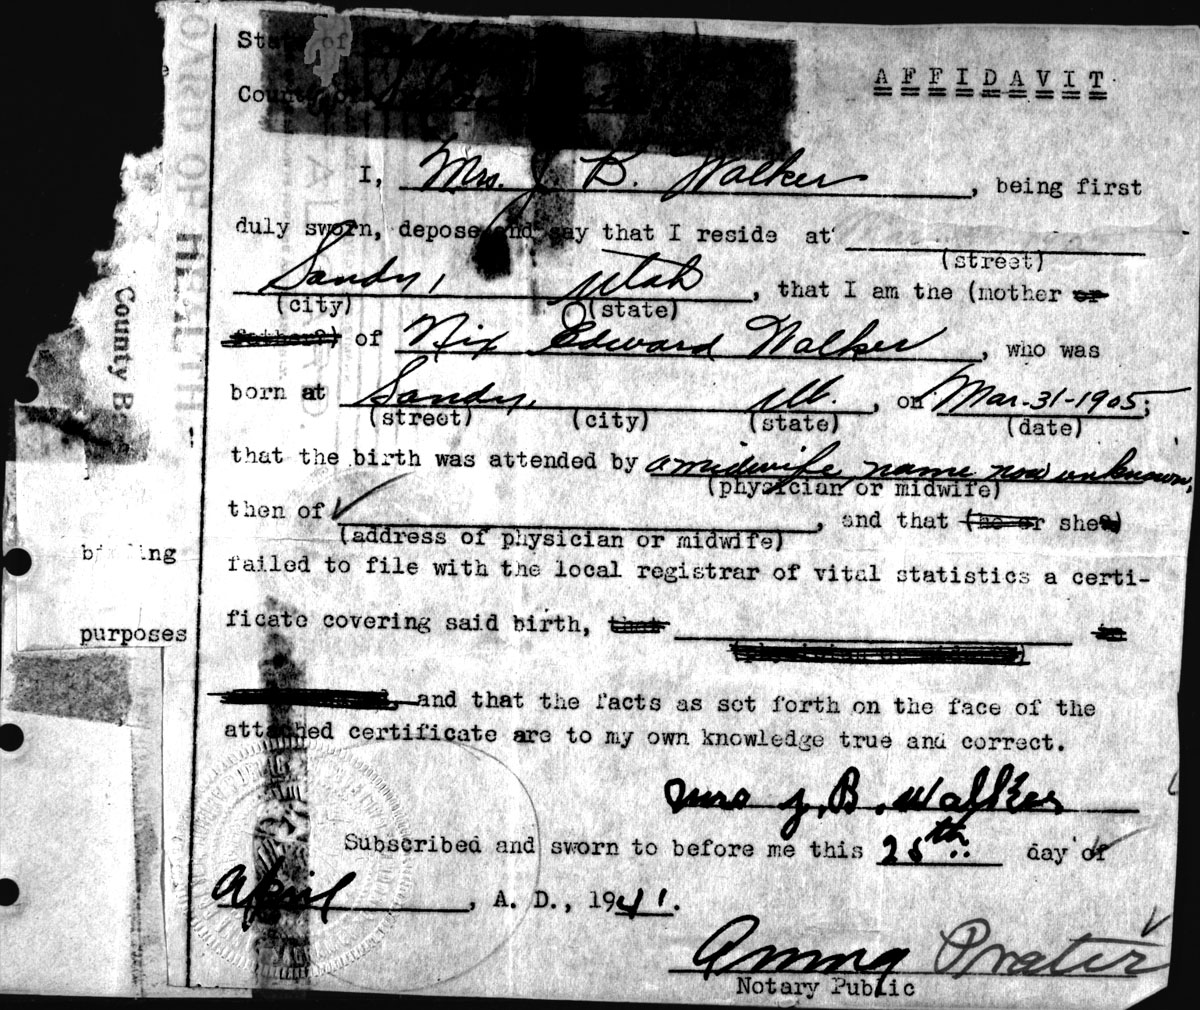 State of
County of
AFFIDAVIT
I, Mrs. J. B. Walker, being first
duly sworn, depose and say that I reside at
(street)
Sandy, Utah, that I am the (mother or
(city) (state)
father?) of Nix Edward Walker, who was
born at Sandy, Ut., on Mar-31-1905;
(street) (city) (state) (date)
that the birth was attended by a midwife name now unknown,
(physician or midwife)
then of , and that (he or she?)
(address of physician or midwife)
failed to file with the local registrar of vital statistics a certi-
ficate covering said birth, that
, and that the facts as set forth on the face of the
attached certificate are to my own knowledge true and correct.
Mrs J. B. Walker
Subscribed and sworn to before me this 25th day of
April, A. D., 1941.
Anna Prater
Notary Public
OARD OF HEALTH
County B
binding
purposes